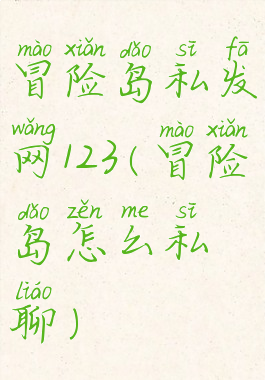 mào xiǎn dǎo sī fā
冒险岛私发
wǎng mào xiǎn
网123(冒险
dǎo zěn me sī
岛怎么私
liáo
聊)